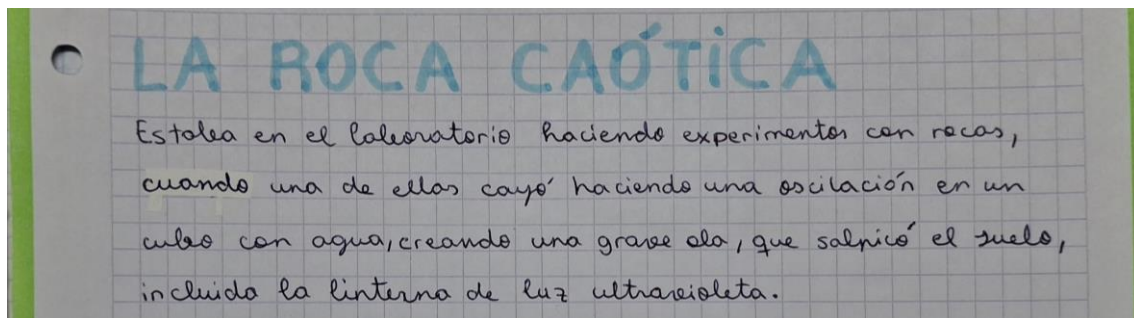 LA ROCA CAÓTICA
Estaba en el laboratorio haciendo experimentos con rocas,
cuando una de ellas cayó haciendo una oscilación en un
cubo con agua, creando una grave ola, que salpicó el suelo,
incluida la linterna de luz ultravioleta.